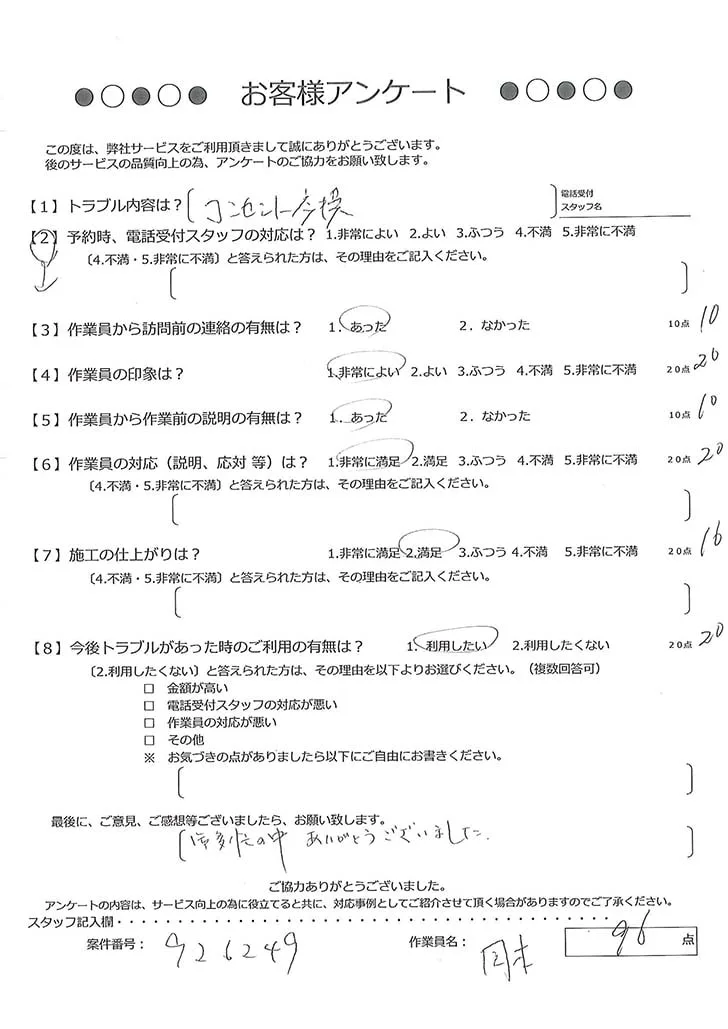 お客様アンケート
この度は、弊社サービスをご利用頂きまして誠にありがとうございます。
後のサービスの品質向上の為、アンケートのご協力をお願い致します。
【1】トラブル内容は？〔コンセント交換〕 電話受付スタッフ名
【2】予約時、電話受付スタッフの対応は？ 1.非常によい 2.よい 3.ふつう 4.不満 5.非常に不満
〔4.不満・5.非常に不満〕と答えられた方は、その理由をご記入ください。
【3】作業員から訪問前の連絡の有無は？ 1．あった 2．なかった 10点 10
【4】作業員の印象は？ 1.非常によい 2.よい 3.ふつう 4.不満 5.非常に不満 20点 20
【5】作業員から作業前の説明の有無は？ 1．あった 2．なかった 10点 10
【6】作業員の対応（説明、応対 等）は？ 1.非常に満足 2.満足 3.ふつう 4.不満 5.非常に不満 20点 20
〔4.不満・5.非常に不満〕と答えられた方は、その理由をご記入ください。
【7】施工の仕上がりは？ 1.非常に満足 2.満足 3.ふつう 4.不満 5.非常に不満 20点 16
〔4.不満・5.非常に不満〕と答えられた方は、その理由をご記入ください。
【8】今後トラブルがあった時のご利用の有無は？ 1．利用したい 2.利用したくない 20点 20
〔2.利用したくない〕と答えられた方は、その理由を以下よりお選びください。（複数回答可）
□ 金額が高い
□ 電話受付スタッフの対応が悪い
□ 作業員の対応が悪い
□ その他
※ お気づきの点がありましたら以下にご自由にお書きください。
最後に、ご意見、ご感想等ございましたら、お願い致します。
の中 ありがとうございました.
ご協力ありがとうございました。
アンケートの内容は、サービス向上の為に役立てると共に、対応事例としてご紹介させて頂く場合がありますのでご了承ください。
スタッフ記入欄・・・・・・・・・・・・・・・・・・・・・・・・・・・・・・・・・・・・
案件番号： 926249 作業員名： 岡本 96 点